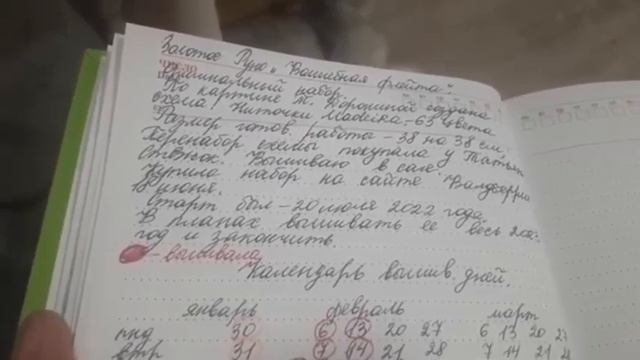 Золотое Руно „Волшебная флейта".
число
Оригинальный набор.
По картине Т. Дорониной создана
схема. Ниточки Madeira – 63 цвета
Размер готов. работа – 38 на 38 см.
Перенабор схемы покупала у Татьян
Стенюк. Вышиваю в сале.
Купила набор на сайте Валдберриз
В июне.
Старт был – 20 июля 2022 года.
В планах вышивать ее весь 202
год и закончить.
– вышивала
Календарь вышив. дней.
январь февраль март
пнд 30 6 13 20 27 6 13 20 27
втр 31 7 14 21 28 7 14 21